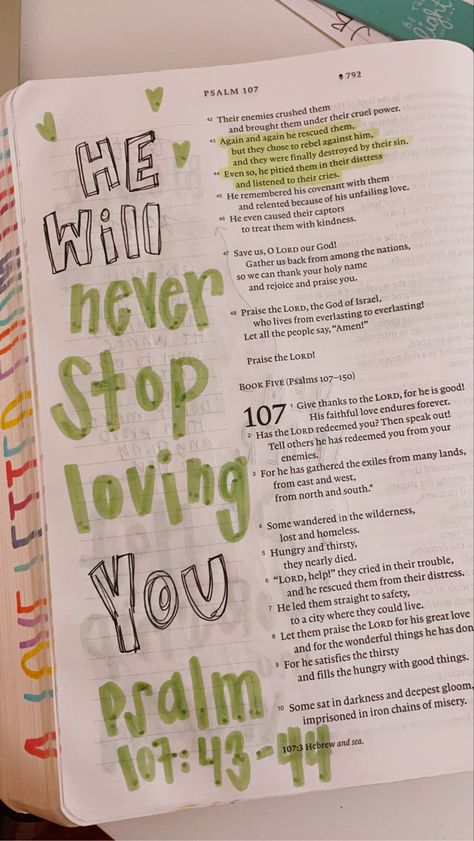 BE THE
light
PSALM 107
792
HE
Will
never
Stop
loving
You
psalm
107:43-44
42 Their enemies crushed them
and brought them under their cruel power.
43 Again and again he rescued them,
but they chose to rebel against him,
and they were finally destroyed by their sin.
44 Even so, he pitied them in their distress
and listened to their cries.
45 He remembered his covenant with them
and relented because of his unfailing love.
46 He even caused their captors
to treat them with kindness.
47 Save us, O LORD our God!
Gather us back from among the nations,
so we can thank your holy name
and rejoice and praise you.
48 Praise the LORD, the God of Israel,
who lives from everlasting to everlasting!
Let all the people say, “Amen!”
Praise the LORD!
BOOK FIVE (Psalms 107–150)
107 1 Give thanks to the LORD, for he is good!
His faithful love endures forever.
2 Has the LORD redeemed you? Then speak out!
Tell others he has redeemed you from your
enemies.
3 For he has gathered the exiles from many lands,
from east and west,
from north and south.*
4 Some wandered in the wilderness,
lost and homeless.
5 Hungry and thirsty,
they nearly died.
6 “LORD, help!” they cried in their trouble,
and he rescued them from their distress.
7 He led them straight to safety,
to a city where they could live.
8 Let them praise the LORD for his great love
and for the wonderful things he has don
9 For he satisfies the thirsty
and fills the hungry with good things.
10 Some sat in darkness and deepest gloom,
imprisoned in iron chains of misery.
107:3 Hebrew and sea.